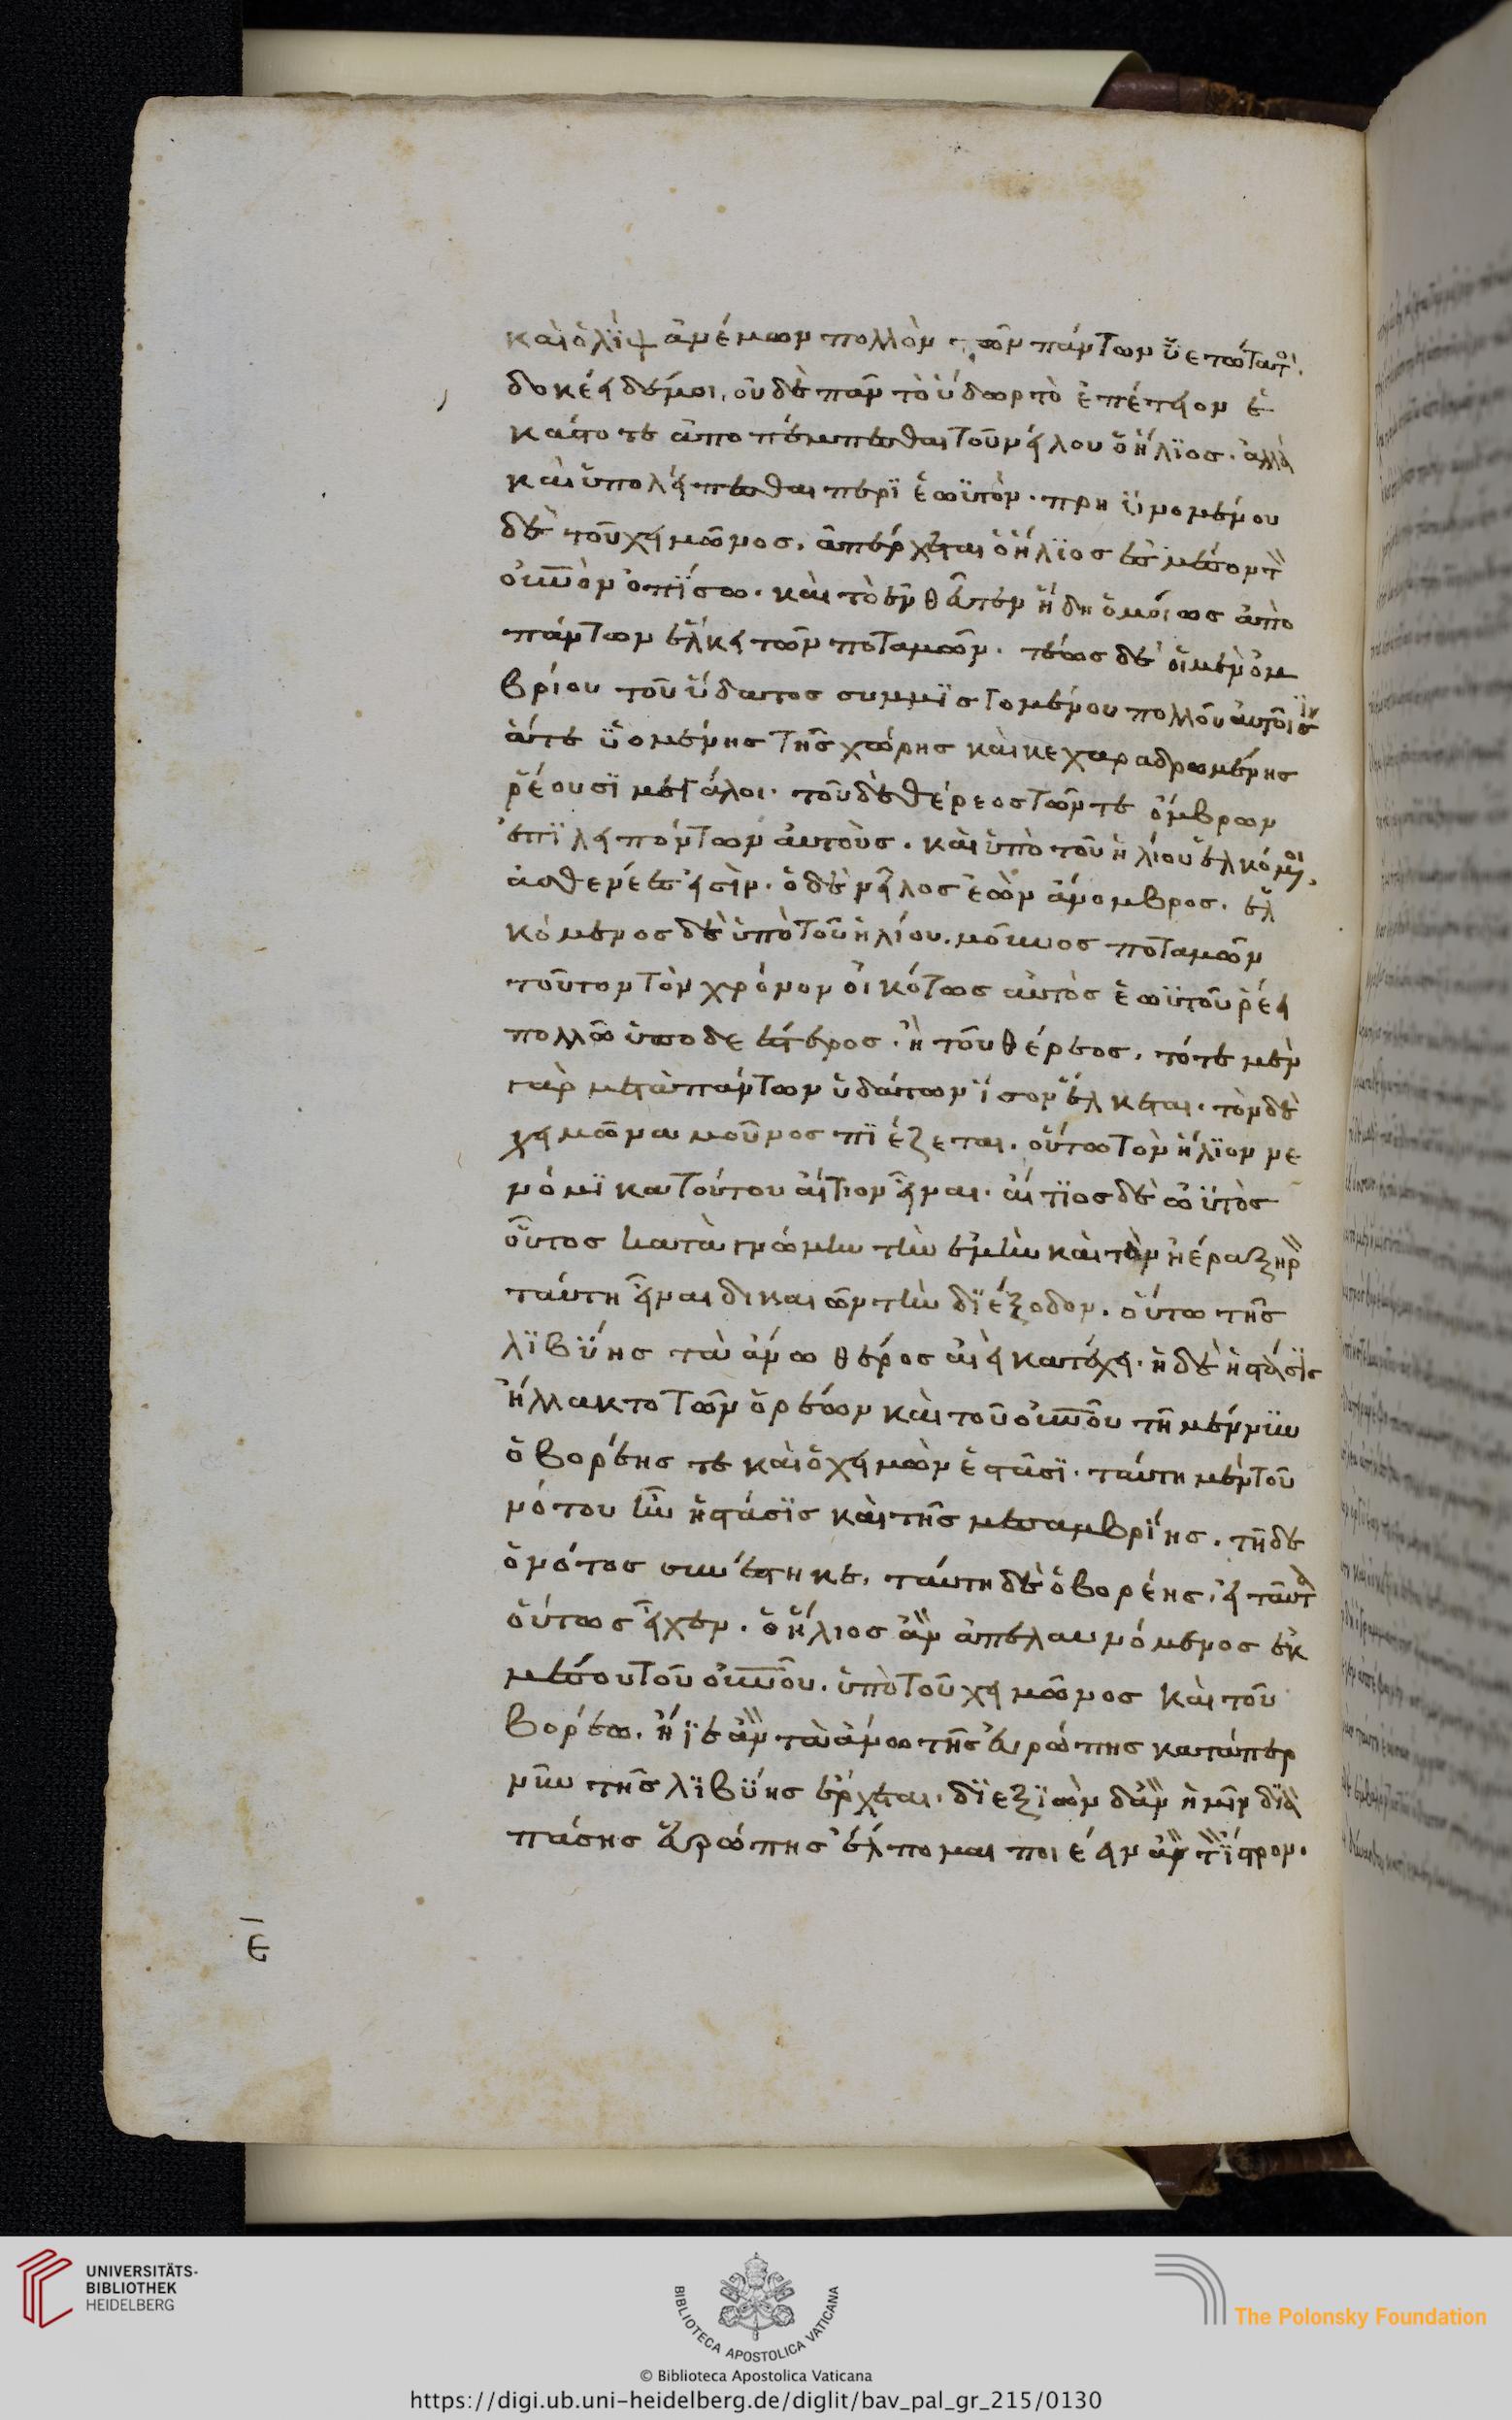 καὶ ὁ λὶψ ἀνέμων πολλὸν τῶν πάντων ὑετώτατοι.
δοκέει δέ μοι, οὐδὲ πᾶν τὸ ὕδωρ τὸ ἐπέτειον ἑ
κάστοτε ἀποπέμπεσθαι τοῦ νείλου ὁ ἥλϊος. ἀλλὰ
καὶ ὑπολείπεσθαι περὶ ἑωϋτόν. πρηϋνομένου
δὲ τοῦ χειμῶνος. ἀπέρχεται ὁ ἥλϊος ἐς μέσον τὸν
οὐνὸν ὀπίσω. καὶ τὸ ἐνθεῦτεν ἤδη ὁμοίως ἀπὸ
πάντων ἕλκει τῶν ποταμῶν. τέως δὲ οἱ μὲν ὀμ
βρίου τοῦ ὕδατος συμμϊσγομένου πολλοῦ αὐτοῖσϊν
ἅτε ὑομένης τῆς χώρης καὶ κεχαραδρωμένης
ῥέουσϊ μεγάλοι. τοῦ δὲ θέρεος τῶν τε ὄμβρων
ἐπιλειπόντων αὐτοὺς. καὶ ὑπὸ τοῦ ἡλίου ἑλκόμενοι,
ἀσθενέες εἰσὶν. ὁ δὲ νεῖλος ἐὼν ἄνομβρος. ἑλ
κόμενος δὲ ὑπὸ τοῦ ἡλίου. μοῦνος ποταμῶν
τοῦτον τὸν χρόνον οἰκότως αὐτὸς ἑωϋτοῦ ῥέει
πολλῶ ὑποδεέστερος. ἢ τοῦ θέρεος. τότε μὲν
γὰρ μετὰ πάντων ὑδάτων ἴσον ἕλκεται. τὸν δὲ
χειμῶνα μοῦνος πϊέζεται. οὕτω τὸν ἥλϊον νε
νόμϊκα τούτου αἴτιον εἶναι. αἴτϊος δὲ ὡϋτὸς
οὗτος κατὰ γνώμην τὴν ἐμὴν καὶ τὸν ἠέρα ξηρὸν
ταύτη εἶναι διακαίων τὴν δϊέξοδον. οὕτω τῆς
λϊβύης τὰ ἄνω θέρος αἰεὶ κατέχει. εἰ δὲ ἡ στάσϊς
ἤλλακτο τῶν ὀρέων καὶ τοῦ οὐνοῦ τῆ μὲν νῦν
ὁ βορέης τε καὶ ὁ χειμὼν ἑστᾶσϊ. ταύτη μὲν τοῦ
νότου ἦν ἡ στάσϊς καὶ τῆς μεσαμβρίης. τῆ δὲ
ὁ νότος συνέστηκε, ταύτη δὲ ὁ βορέης. εἰ ταῦτα
οὕτως εἶχεν. ὁ ἥλιος ἂν ἀπελαυνόμενος ἐκ
μέσου τοῦ οὐνοῦ. ὑπὸ τοῦ χειμῶνος καὶ τοῦ
βορέω. ἤϊε ἂν τὰ ἄνω τῆς εὐρώπης κατάπερ
νῦν τῆς λϊβύης ἔρχεται. δϊεξϊὼν δ ἂν ἡμῖν δϊὰ
πάσης εὐρώπης ἔλπομαι ποιέειν ἂν τὸν ἴστρον.
ε
UNIVERSITÄTS-
BIBLIOTHEK
HEIDELBERG
BIBLIOTECA APOSTOLICA VATICANA
The Polonsky Foundation
© Biblioteca Apostolica Vaticana
https://digi.ub.uni-heidelberg.de/diglit/bav_pal_gr_215/0130